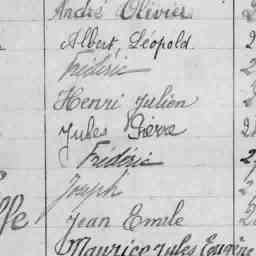 André Olivier
Albert, Léopold
Frédéric
Henri Julien
Jules Pierre
Frédéric
Joseph
Jean Emile
Maurice Jules Eugène